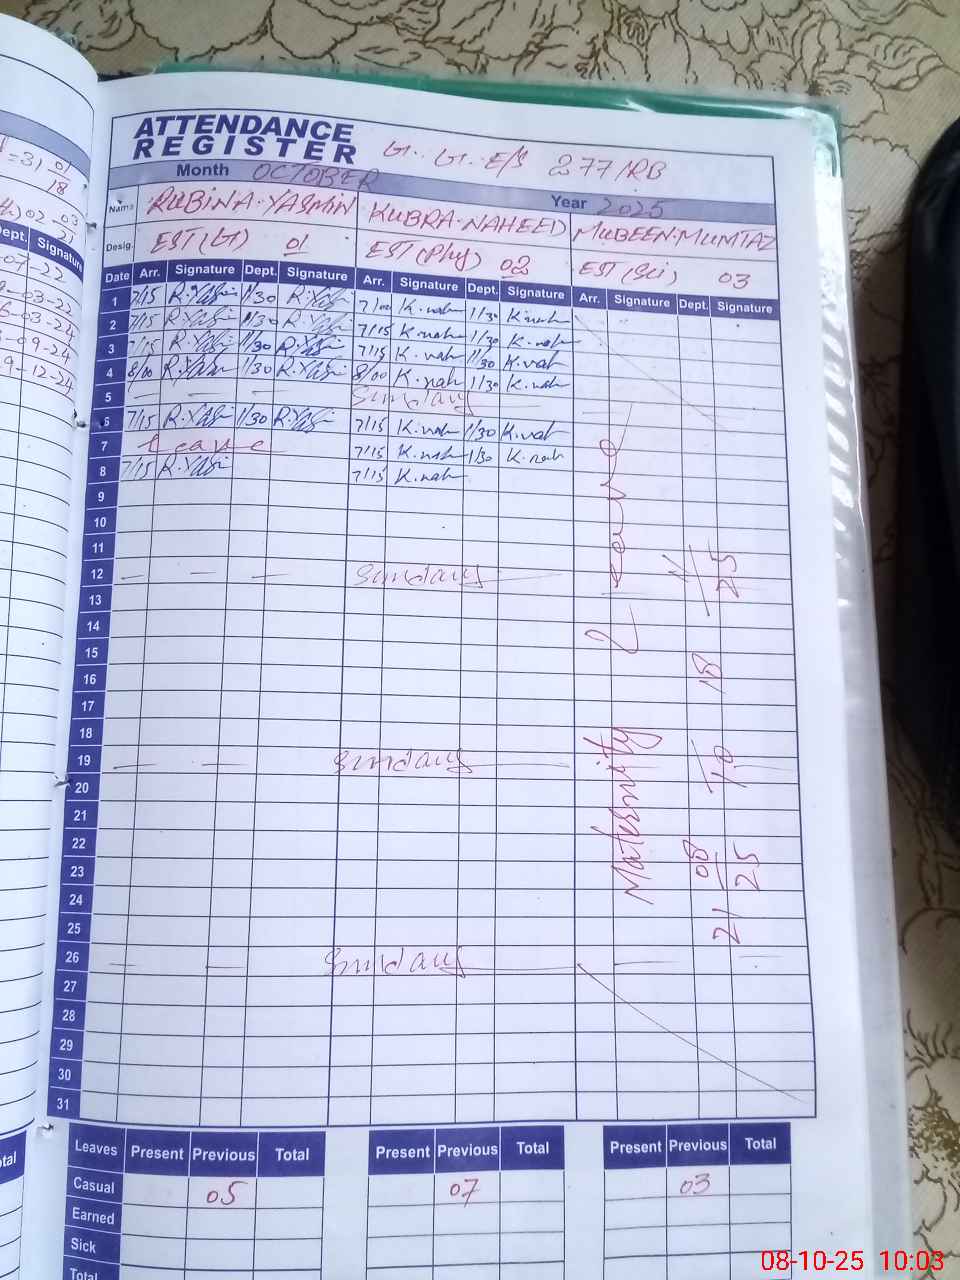 ATTENDANCE
REGISTER
G.. G.. E/S 277/RB
Month OCTOBER Year 2025
Name RUBINA.YASMIN KUBRA.NAHEED MUBEEN.MUMTAZ
Desig. EST(G) 01 EST(Phy) 02 EST(Sci) 03
Date Arr. Signature Dept. Signature Arr. Signature Dept. Signature Arr. Signature Dept. Signature
1 7/15 R.Yasi 1/30 R.Yasi 7/00 K.nah 1/30 K.nah
2 7/15 R.Yasi 1/30 R.Yasi 7/15 K.nah 1/30 K.nah
3 7/15 R.Yasi 1/30 R.Yasi 7/15 K.nah 1/30 K.nah
4 8/00 R.Yasi 1/30 R.Yasi 8/00 K.nah 1/30 K.nah
5 — — — Sunday
6 7/15 R.Yasi 1/30 R.Yasi 7/15 K.nah 1/30 K.nah
7 Leave 7/15 K.nah 1/30 K.nah
8 7/15 R.Yasi 7/15 K.nah
9
10
11
12 — — — Sunday
13
14
15
16
17
18
19 — — Sunday
20
21
22
23
24
25
26 — — Sunday
27
28
29
30
31
Maternity Leave
21 08/25 18 11/25
Leaves Present Previous Total Present Previous Total Present Previous Total
Casual 05 07 03
Earned
Sick
Total
08-10-25 10:03